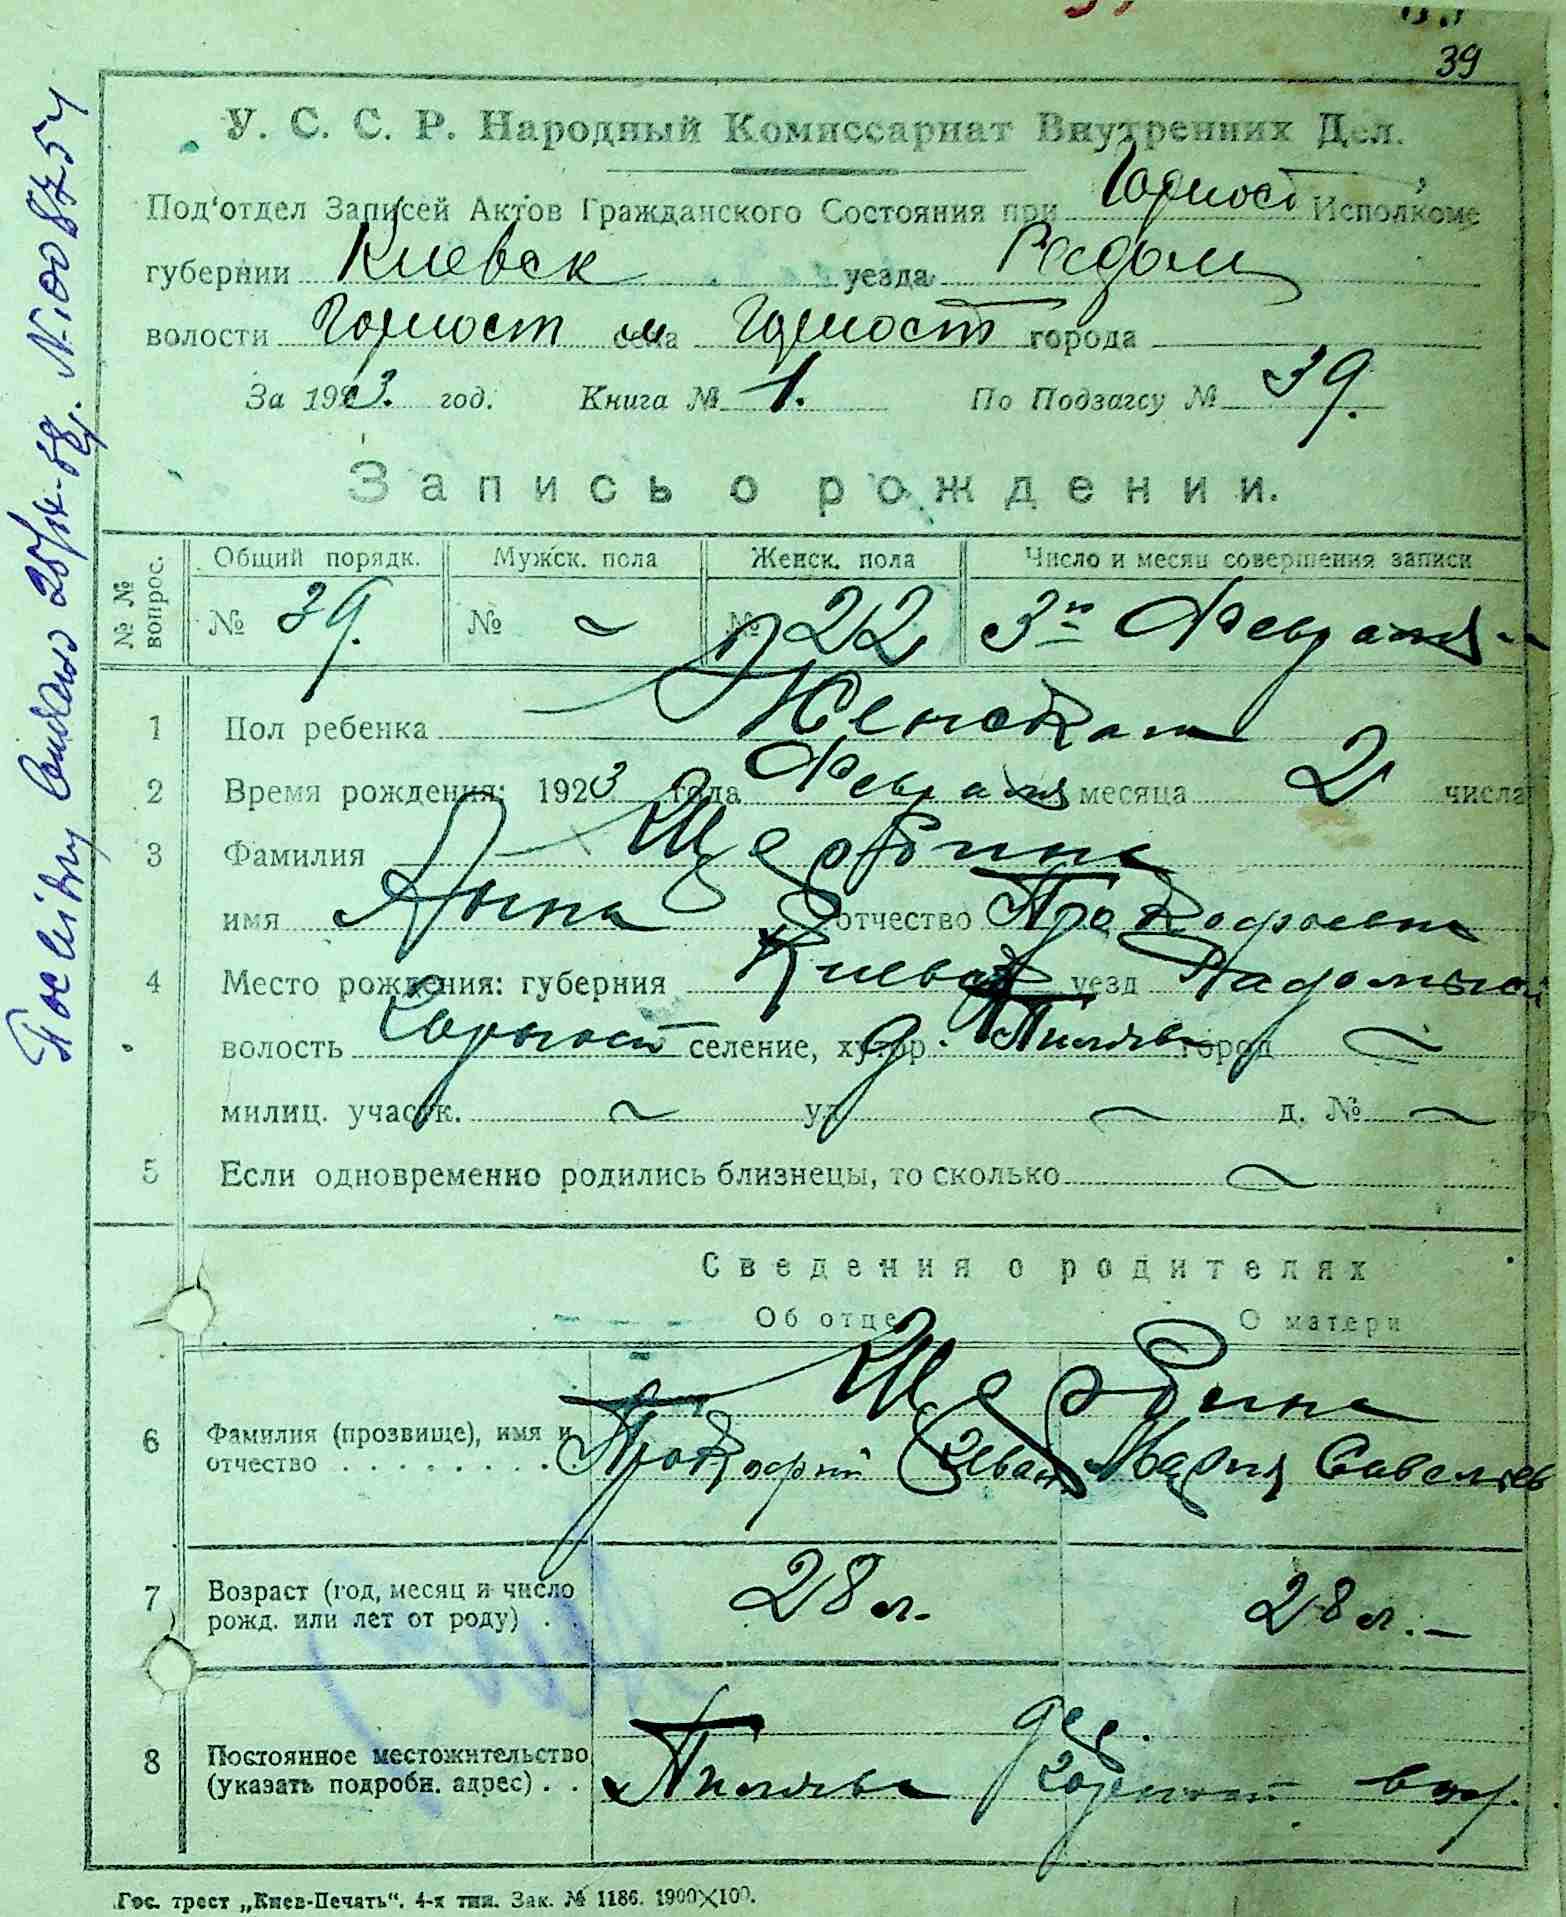 39
У. С. С. Р. Народный Комиссариат Внутренних Дел.
Под‘отдел Записей Актов Гражданского Состояния при Горност Исполкоме
губернии Киевск уезда
волости Горност села Горност города
За 1923. год. Книга № 1. По Подзагсу № 39.
Запись о рождении.
№ № вопрос. Общий порядк. Мужск. пола Женск. пола Число и месяц совершения записи
№ 39. № ~ № 22 3го Февраля
1 Пол ребенка Женская
2 Время рождения: 1923 года Февраля месяца 2 числа
3 Фамилия Щербина
имя отчество Прокофьевна
4 Место рождения: губерния Киевск уезд
волость Горност селение, хутор д. город ~
милиц. участк. ~ ул ~ д. № ~
5 Если одновременно родились близнецы, то сколько ~
Сведения о родителях
Об отце О матери
Щербина
6 Фамилия (прозвище), имя и
отчество Прокофий Иван Мария Савелиев
7 Возраст (год, месяц и число
рожд. или лет от роду) 28 л. 28 л.
8 Постоянное местожительство дер.
(указать подробн. адрес) Горност вол.
Гос. трест „Киев-Печать“. 4-я тип. Зак. № 1186. 1900×100.